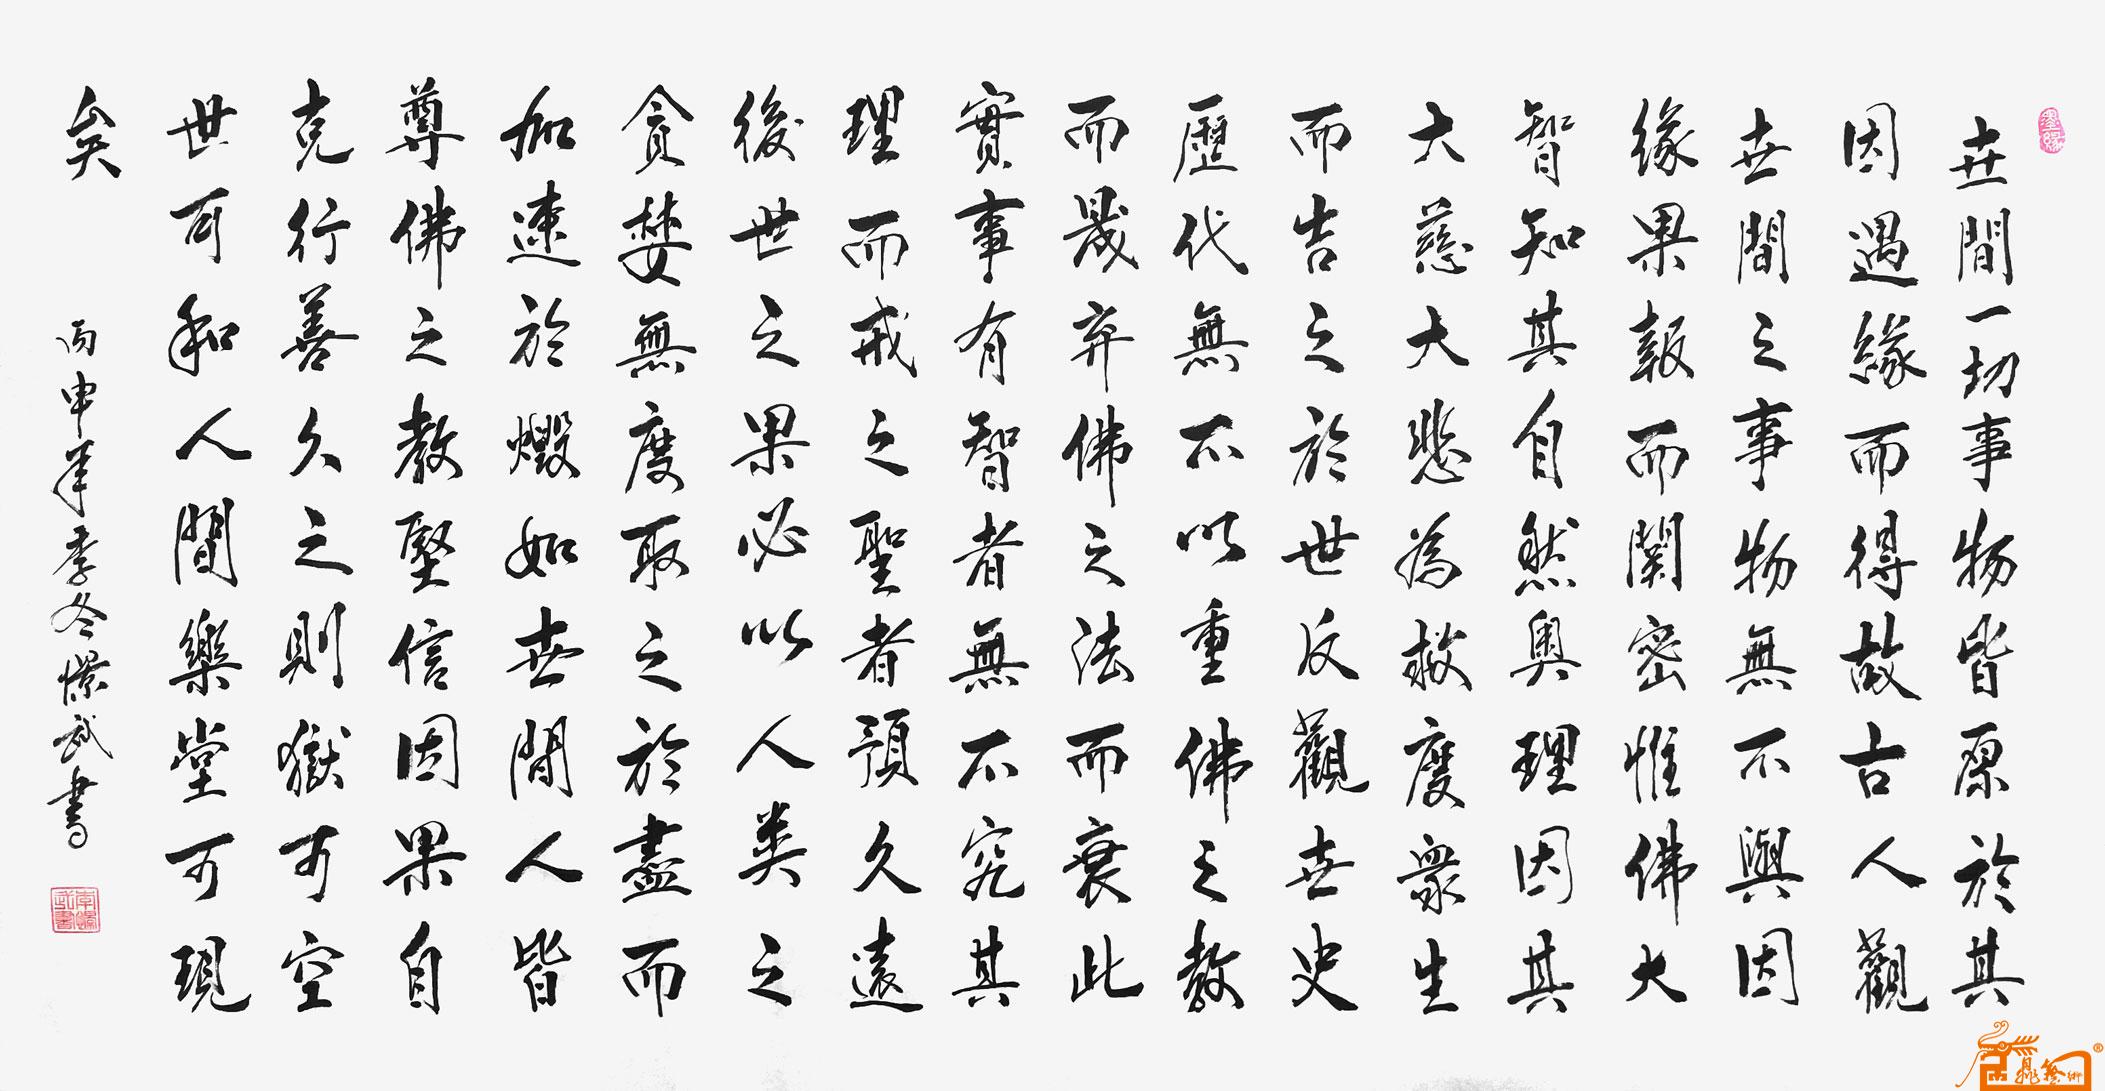 世間一切事物皆原於其
因遇緣而得故古人觀
世間之事物無不與因
緣果報而關密惟佛大
智知其自然奧理因其
大慈大悲為救度眾生
而吉之於世反觀世史
歷代無不以重佛之教
而晟弃佛之法而衰此
實事有智者無不究其
理而戒之聖者預久遠
後世之果必以人类之
貪婪無度取之於盡而
加速於燬如世間人皆
尊佛之教堅信因果自
克行善久之則獄可空
世可和人間樂堂可現
矣
丙申年季冬憬武書
墨緣